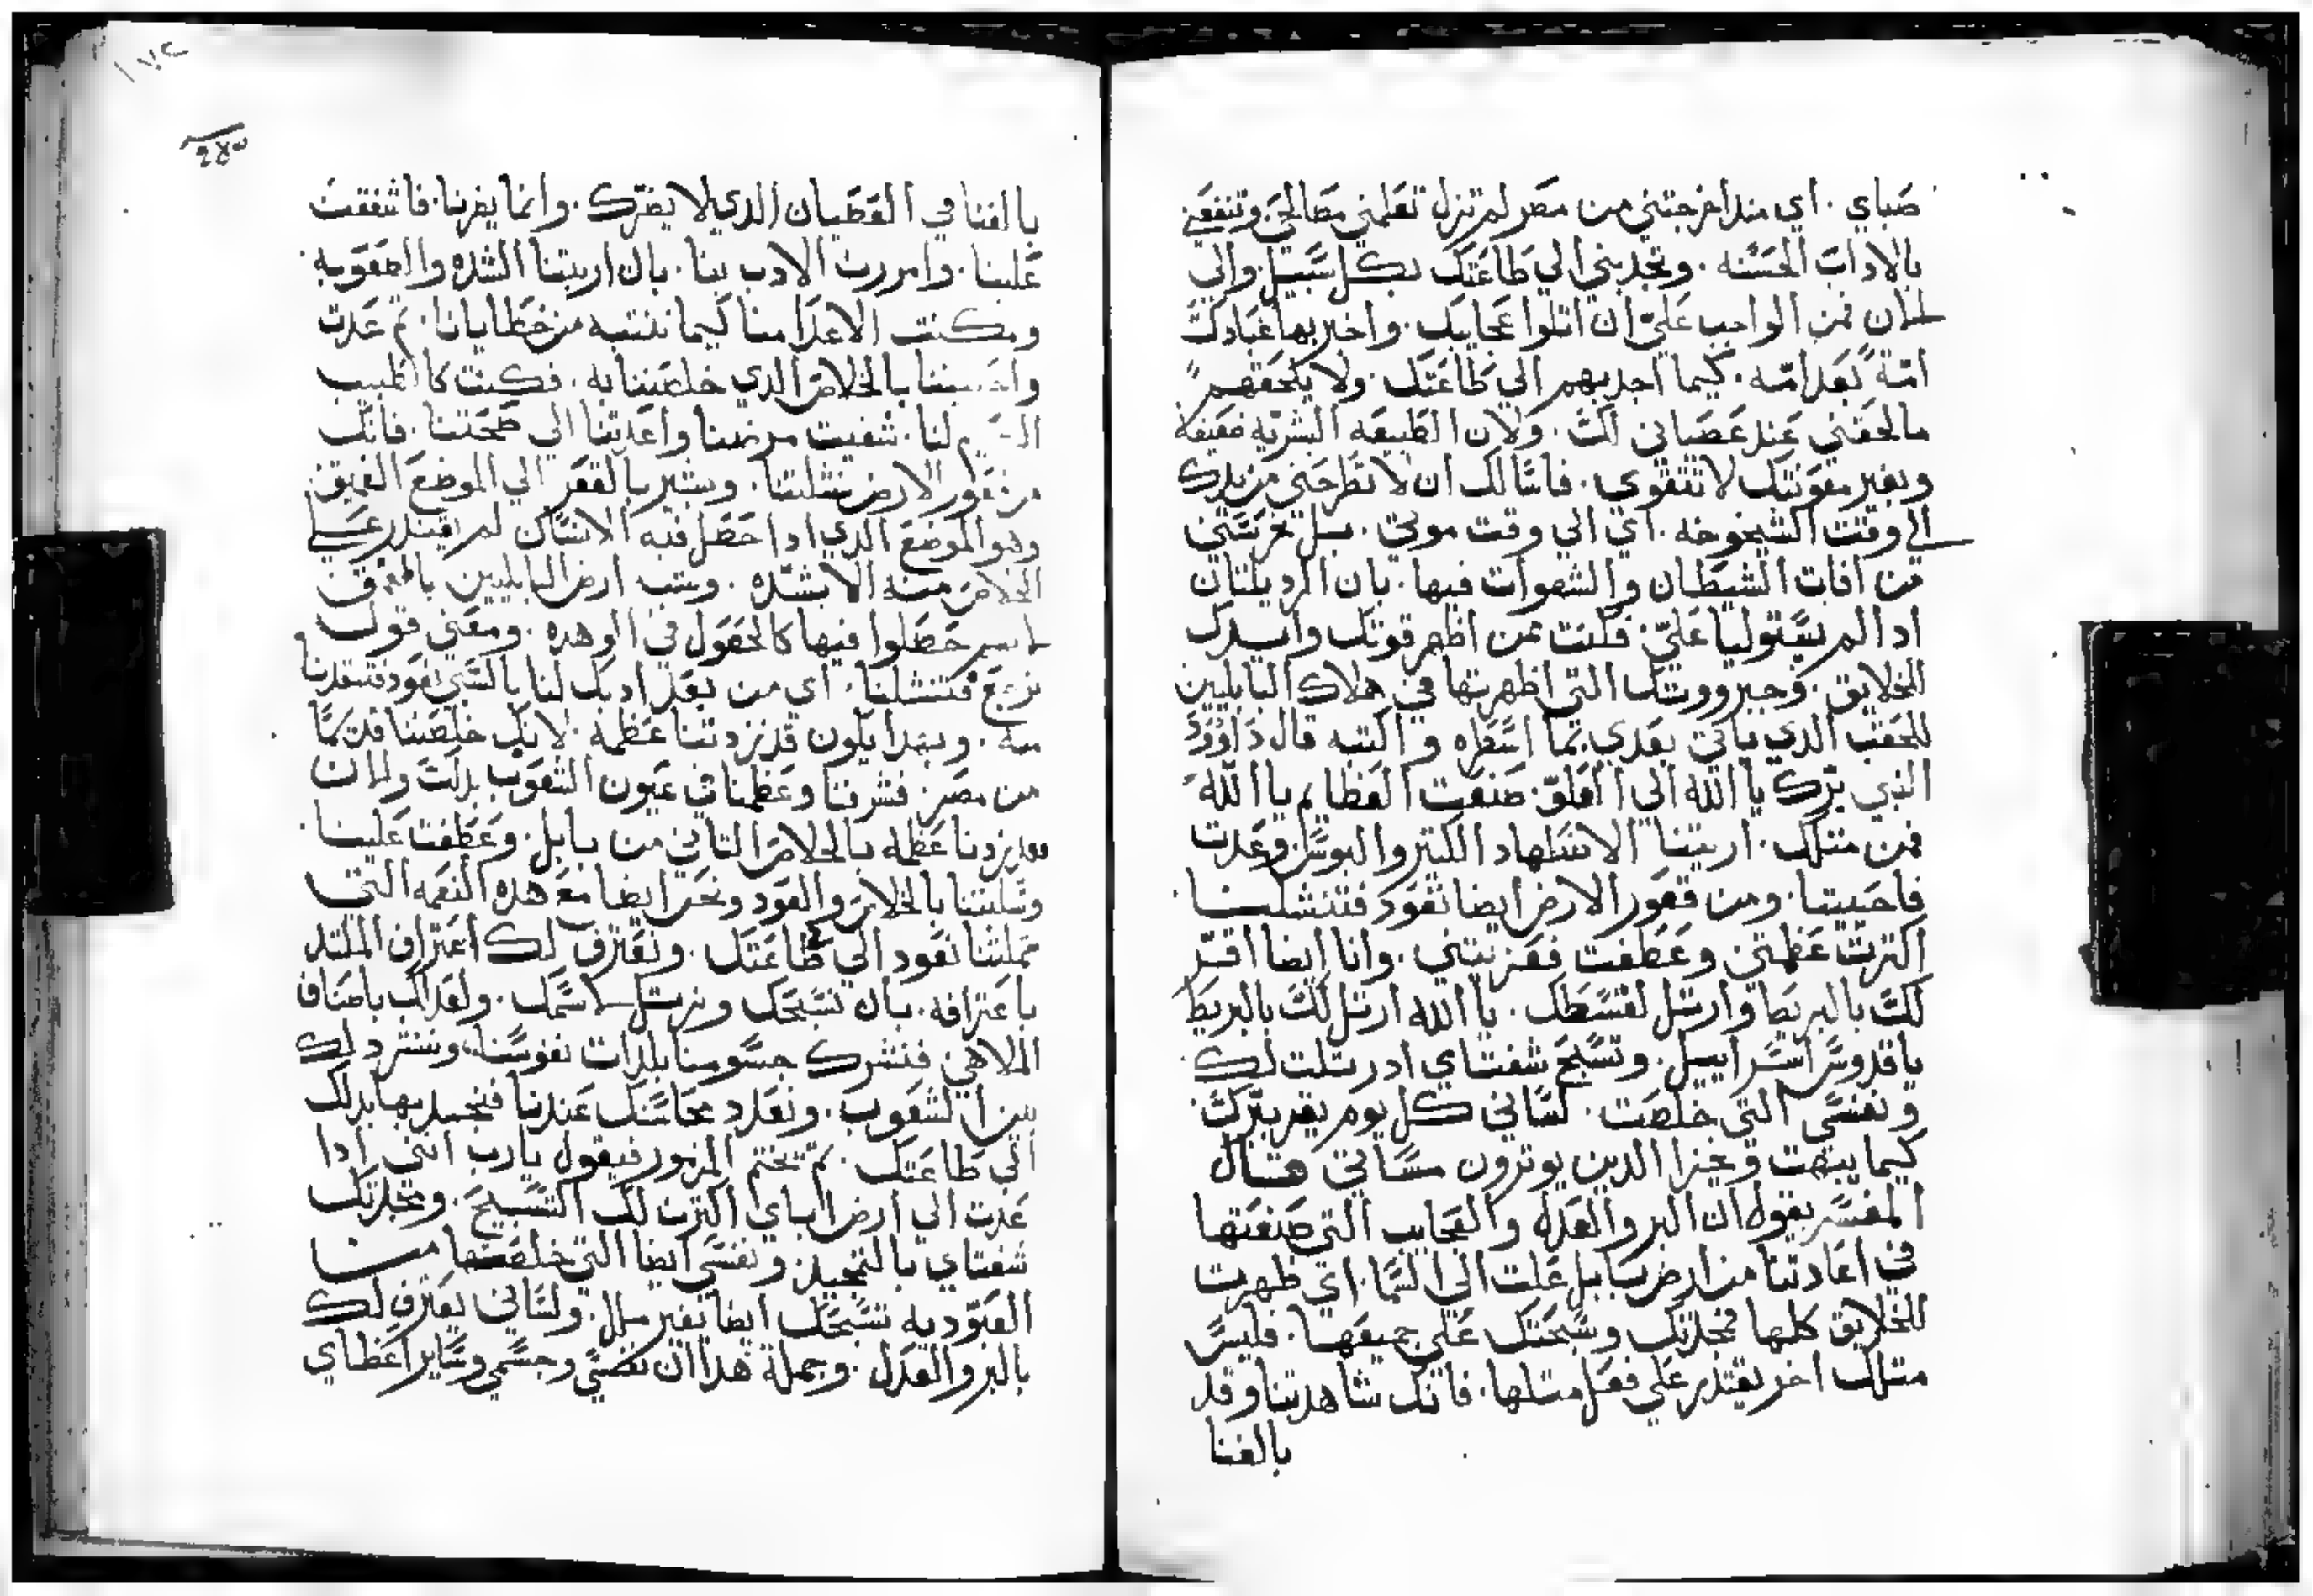 صباي. اي منذ اخرجتني من مصر لم تزل تعلمني مصالحي وتنفعني
بالاداب الحسنه. وتجدبني الي طاعتك بكل سبيل. والي
الان فمن الواجب عليّ ان اتلوا عجايبك. واخبر بها عبادك
امّة بعد امّه. كيما اجدبهم الي طاعتك. ولا يلحقهم
ما لحقني عند عصياني لك. ولان الطبيعه البشريه ضعيفه
وبغير معونتك لا تتقوي. فاسالك ان لا تطرحني من يدك
الي وقت الشيخوخه. اي الي وقت موتي. بل تحرسني
من افات الشيطان والشهوات فيها. بان الرديلتان
ادا لم يستوليا عليّ. فكنت ممن اظهر قوتك وايدك
للخلايق. وجبرووتك التي اظهرتها في هلاك البابليين
للحقب الدي ياتي بعدي بما اسطره واكتبه قال داوود
النبي برّك يا الله الي العلوّ. صنعت العظايم يا الله
فمن متلك. اريتنا الاضطهاد الكتير والبوس. وعدت
فاحييتنا. ومن قعور الارض ايضا تعود فتنشلنا
اكترت عظمتي وعطفت فعزيتني. وانا ايضا اقرّ
لك بالبربط وارتل لقسطك. يا الله ارتل لك بالبربط
يا قدوس اسراييل. وتسبح شفتاي اد رتلت لك
ونفسي التي خلصت. لساني كل يوم يقر ببرّك
كيما يبهت ويخزا الدين يوترون مساتي قال
المفسر يقول ان البر والعدل والعجايب التي صنعتها
في اعادتنا من ارض بابل علت الي السما. اي ظهرت
للخلايق كلها فمجدتك وسبحتك علي جميعها. فليس
متلك اخر يقتدر علي فعل متلها. فانك شاهدتنا وقد
بالغنا
١٧٢
بالغنا في العصيان الدي لا يضرّك. وانما يضرنا. فاشفقت
علينا. وامررت الادب بنا. بان اريتنا الشده والعقوبه
ومكنت الاعدا منا كيما ننتبه من خطايانا. تم عدت
بالخلاص الدي خلصتنا به. فكنت كالطبيب
لنا. شفيت مرضنا واعدتنا الي صحتنا. فانك
من قعور الارض نشلتنا. ويشير بالقعر الي الموضع العميق
وهو الموضع الدي ادا حصل فيه الانسان لم يقتدر علي
الخلاص منه الا بشدّه. وشبه ارض البابليين بالعمق
حصلوا فيها كالحصول في الوهده. ومعني قول
ترجع فتنشلنا. اي من بعد ادبك لنا بالسبي تعود فتنقدنا
منه. وبهدا يكون قد زدتنا عظمه. لانك خلصتنا قديما
من مصر. فشرفتنا وعظمتنا في عيون الشعوب بدلك والان
زدتنا عظمه بالخلاص التاني من بابل. وعطفت علينا
وسليتنا بالخلاص والعود ونحن ايضا مع هده النعمه التي
شملتنا نعود الي طاعتك. ونعترف لك اعتراف الملتد
باعترافه. بان نسبحك ونرتل لاسمك. ولعدلك باصناف
الملاهي فنشرك جسومنا بلدات نفوسنا. وننفرد لك
بين الشعوب. ونعدد محاسنك عندنا فنجدبها بدلك
الي طاعتك. تم تختم المزمور فيقول يا رب انني ادا
عدت الي ارض اباي اكترت لك التسبيح. وتمجدتك
شفتاي بالتمجيد. ونفسي ايضا التي خلصتها من
العبوّديه تسبحك ايضا بغير ملل. ولساني يعترف لك
بالبر والعدل. وجملة هدا ان نفسي وجسمي وساير اعظاي